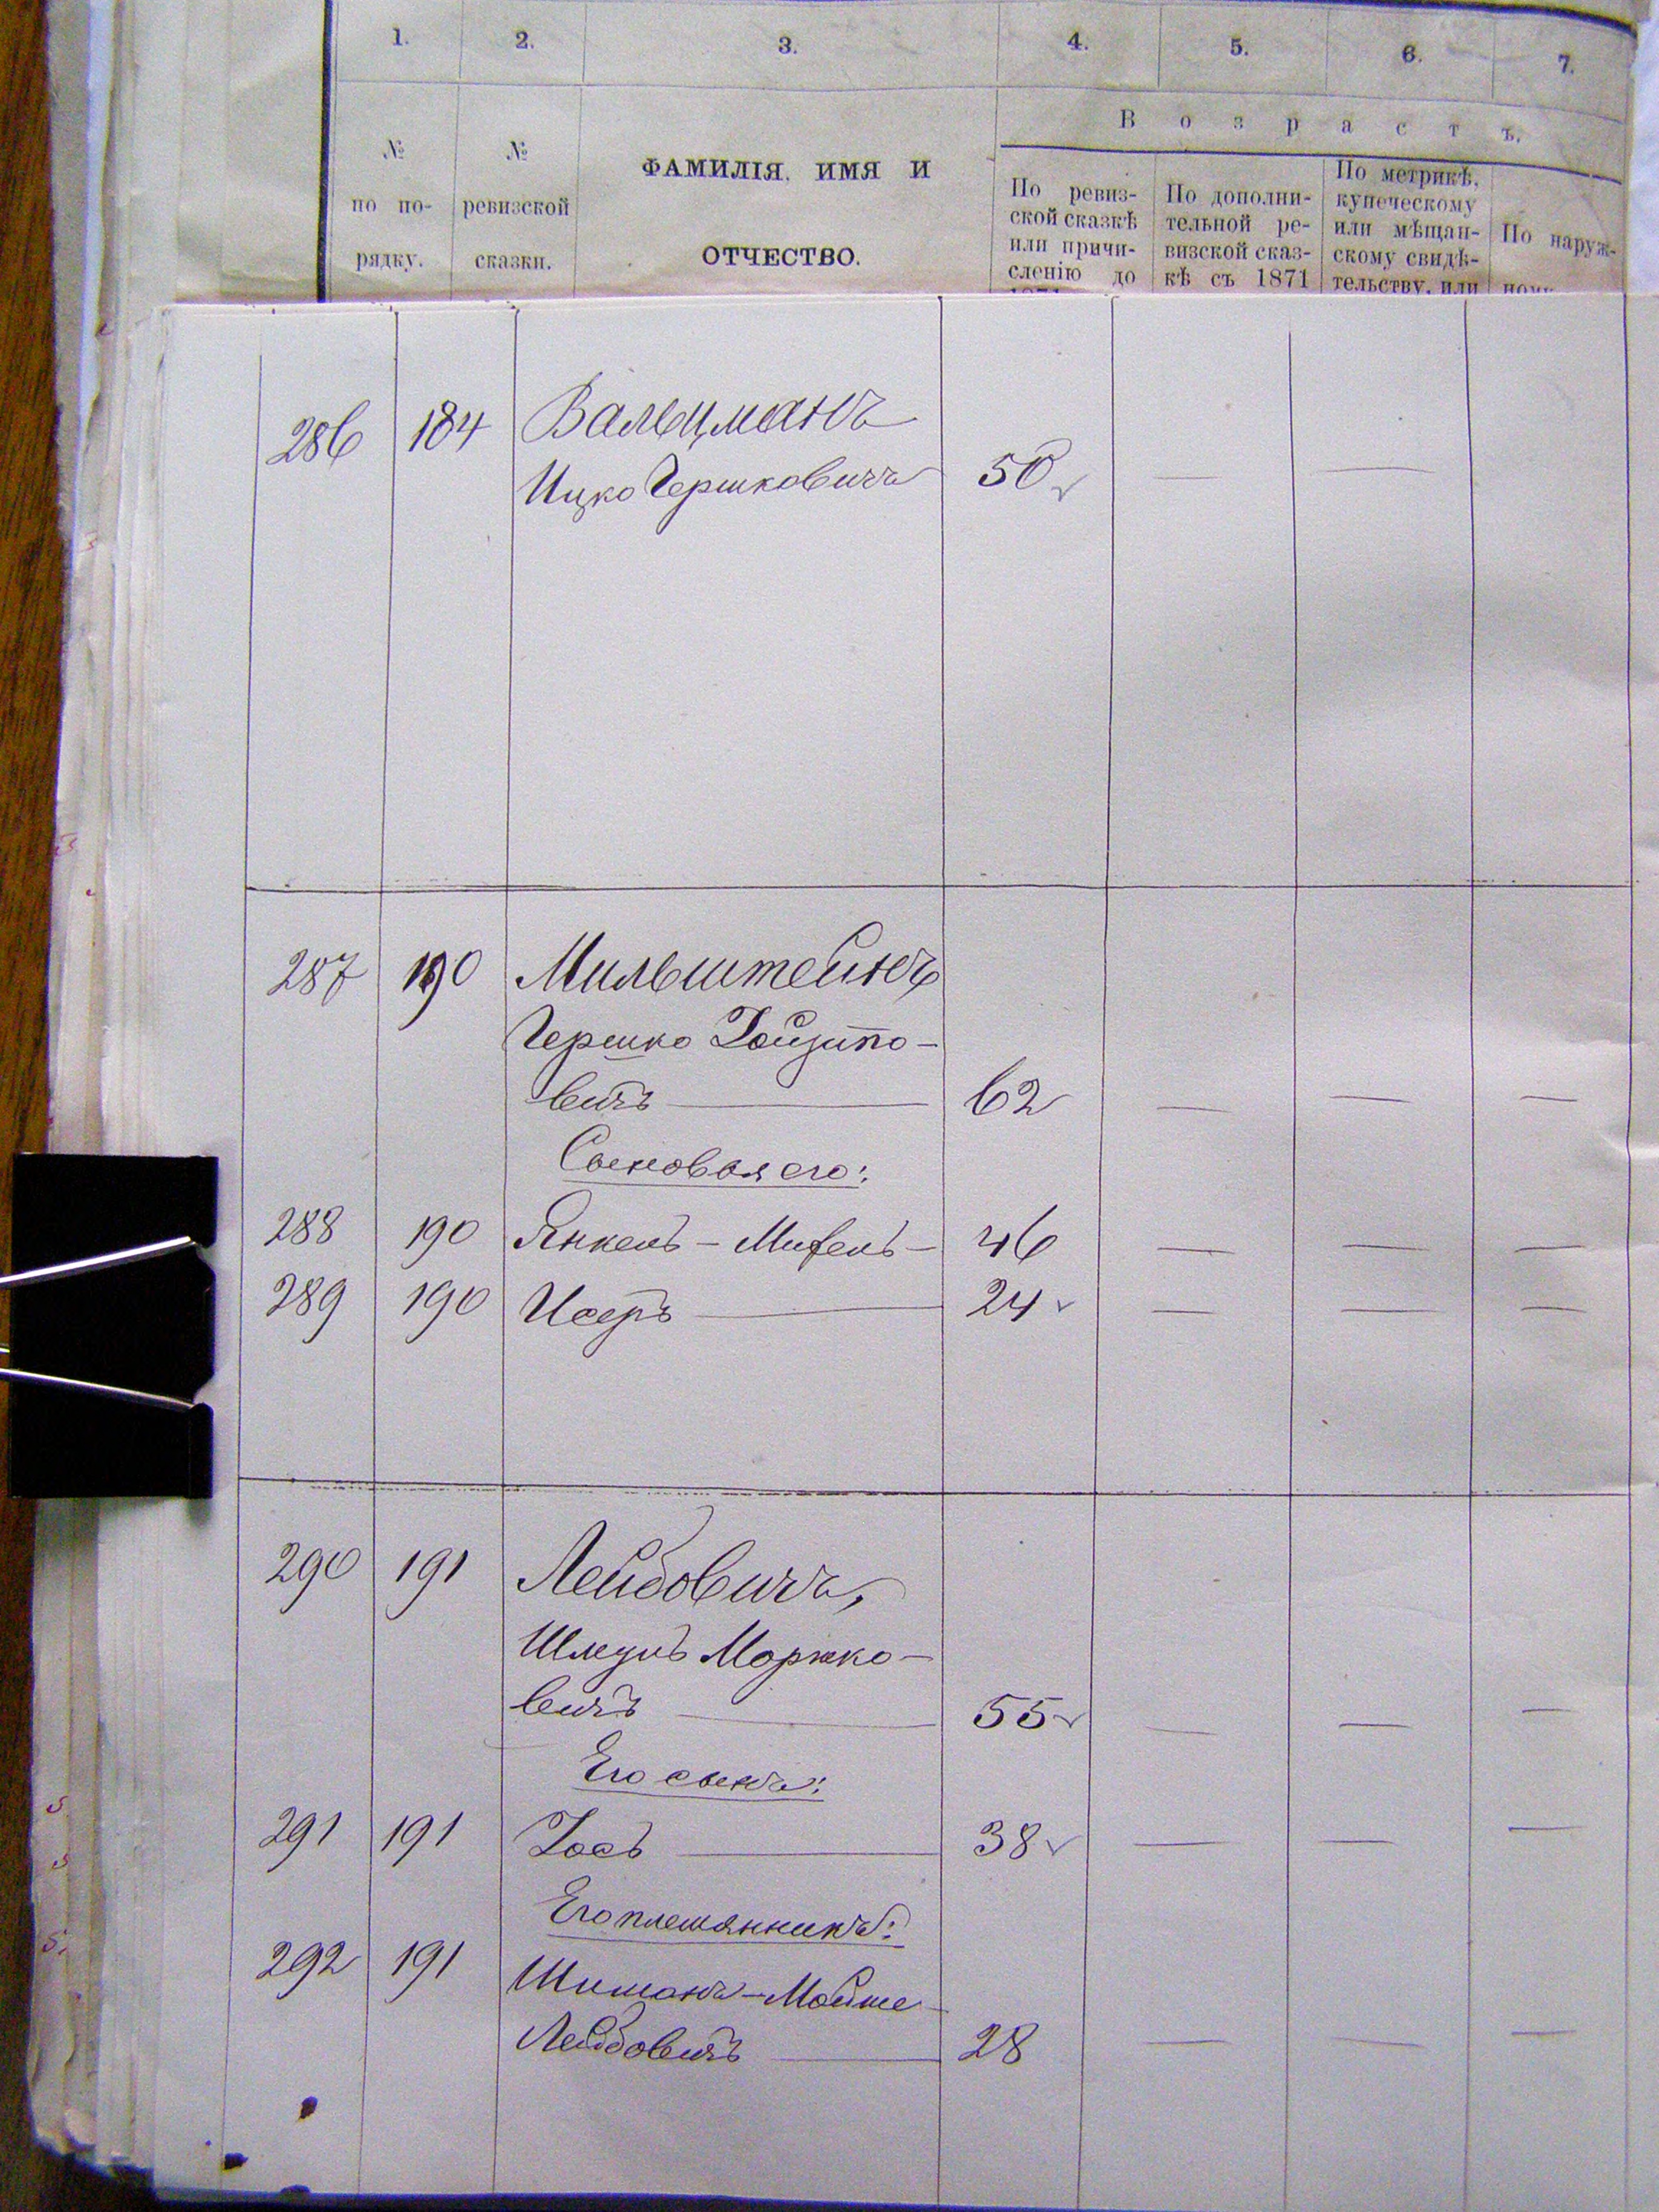 1. 2. 3. 4. 5. 6. 7.
№ по по- рядку.
№ ревизской сказки.
ФАМИЛІЯ, ИМЯ И
ОТЧЕСТВО.
Возрастъ.
По ревиз-
ской сказкѣ
или причи-
сленію до
1871
По дополни-
тельной ре-
визской сказ-
кѣ съ 1871
По метрикѣ,
купеческому
или мѣщан-
скому свидѣ-
тельству, или
По наруж-
286 184 Вальцманъ
Ицко Гершковичъ 50 — —
287 190 Мильштейнъ
Гершко
вичъ — 62 — — —
Сыновья его:
288 190 Янкель - Михель - 46 — — —
289 190 Исеръ — 24 — — —
290 191 Лейбовичъ,
Шмуль Моржко-
вичъ — 55 — — —
Его сынъ:
291 191 Іось — 38 — — —
Его племянникъ:
292 191 Шимонъ-Мойше
Лейбовичъ — 28 — — —